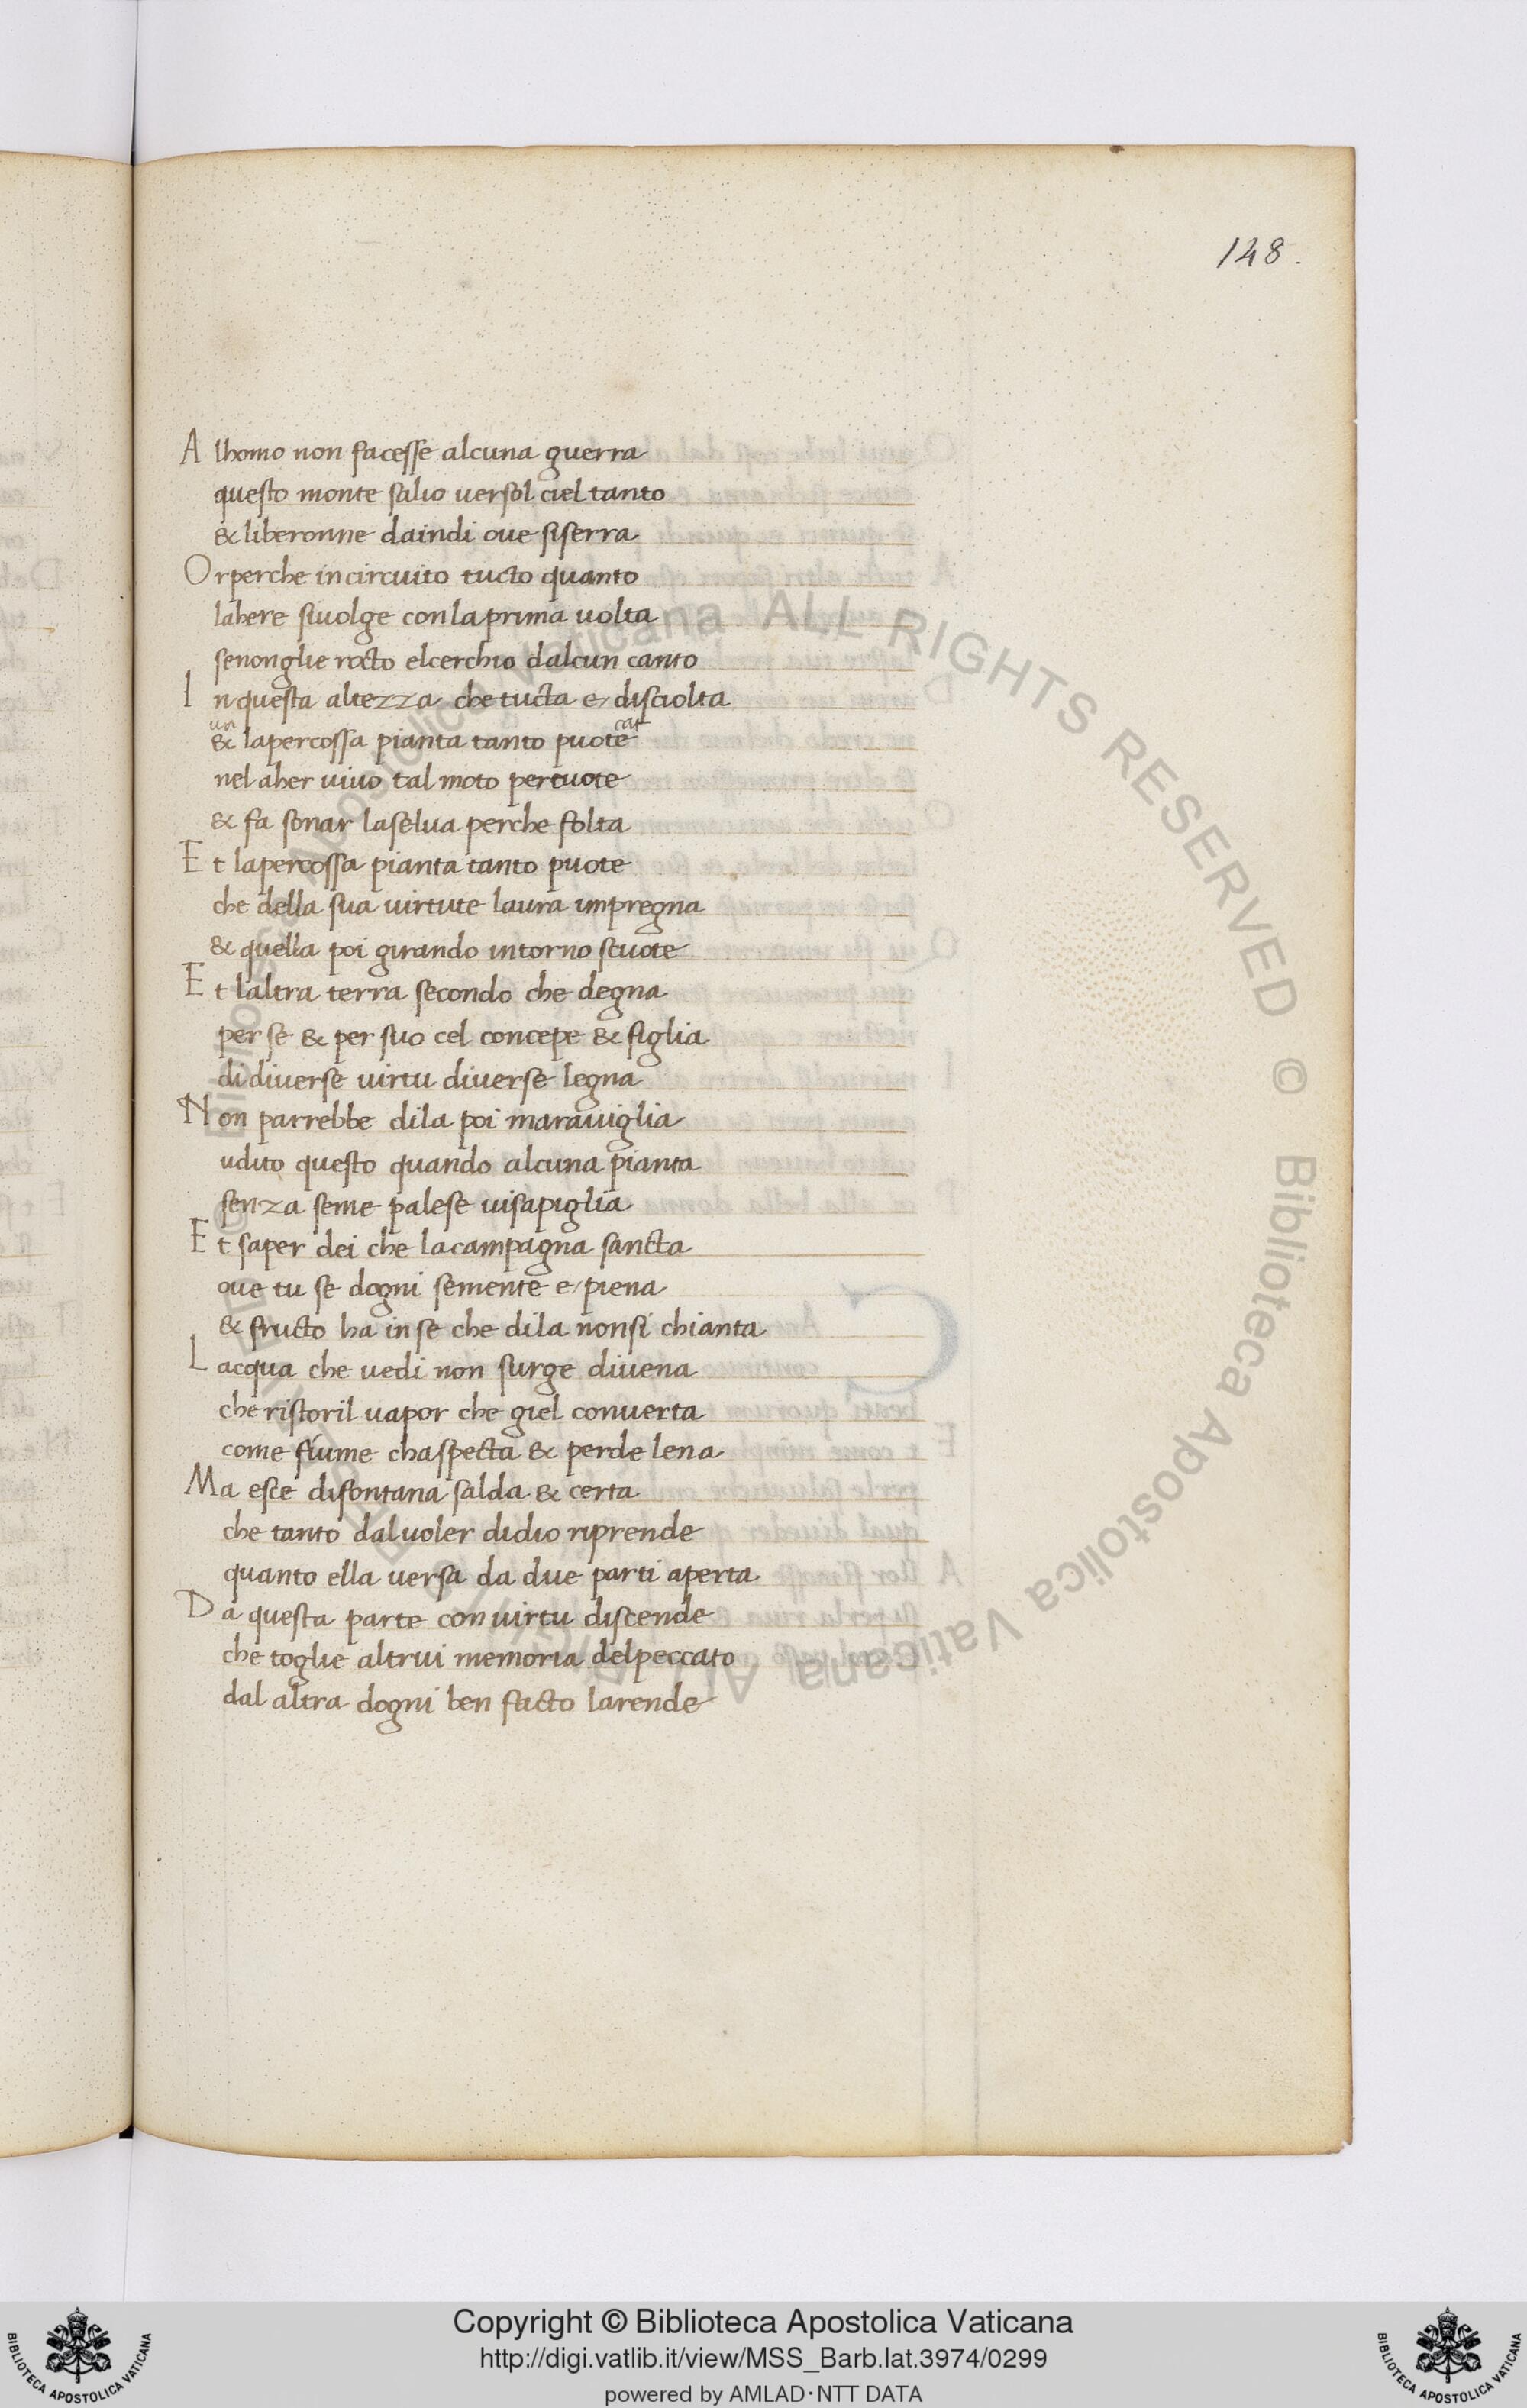 148.
A lhomo non facesse alcuna guerra
questo monte salio uersol ciel tanto
& liberonne daindi oue siserra
Or perche in circuito tucto quanto
lahere siuolge con la prima uolta
senonglie rocto elcerchio dalcun canto
I n questa altezza che tucta e disciolta
un cat
& lapercossa pianta tanto puote
nel aher uiuo tal moto percuote
& fa sonar laselua perche folta
E t lapercossa pianta tanto puote
che della sua uirtute laura impregna
& quella poi girando intorno scuote
E t laltra terra secondo che degna
per se & per suo cel concepe & figlia
di diuerse uirtu diuerse legna
N on parrebbe dila poi marauiglia
udito questo quando alcuna pianta
senza seme palese uisapiglia
E t saper dei che lacampagna sancta
oue tu se dogni semente e piena
& fructo ha in se che dila nonsi chianta
L acqua che uedi non surge diuena
che ristoril uapor che giel conuerta
come fiume chaspecta & perde lena
M a esce difontana salda & certa
che tanto daluoler didio riprende
quanto ella uersa da due parti aperta
D a questa parte con uirtu discende
che toglie altrui memoria delpeccato
dal altra dogni ben facto larende
Biblioteca Apostolica Vaticana ALL RIGHTS RESERVED © Biblioteca Apostolica Vaticana
BIBLIOTECA APOSTOLICA VATICANA
Copyright © Biblioteca Apostolica Vaticana
http://digi.vatlib.it/view/MSS_Barb.lat.3974/0299
powered by AMLAD·NTT DATA
BIBLIOTECA APOSTOLICA VATICANA